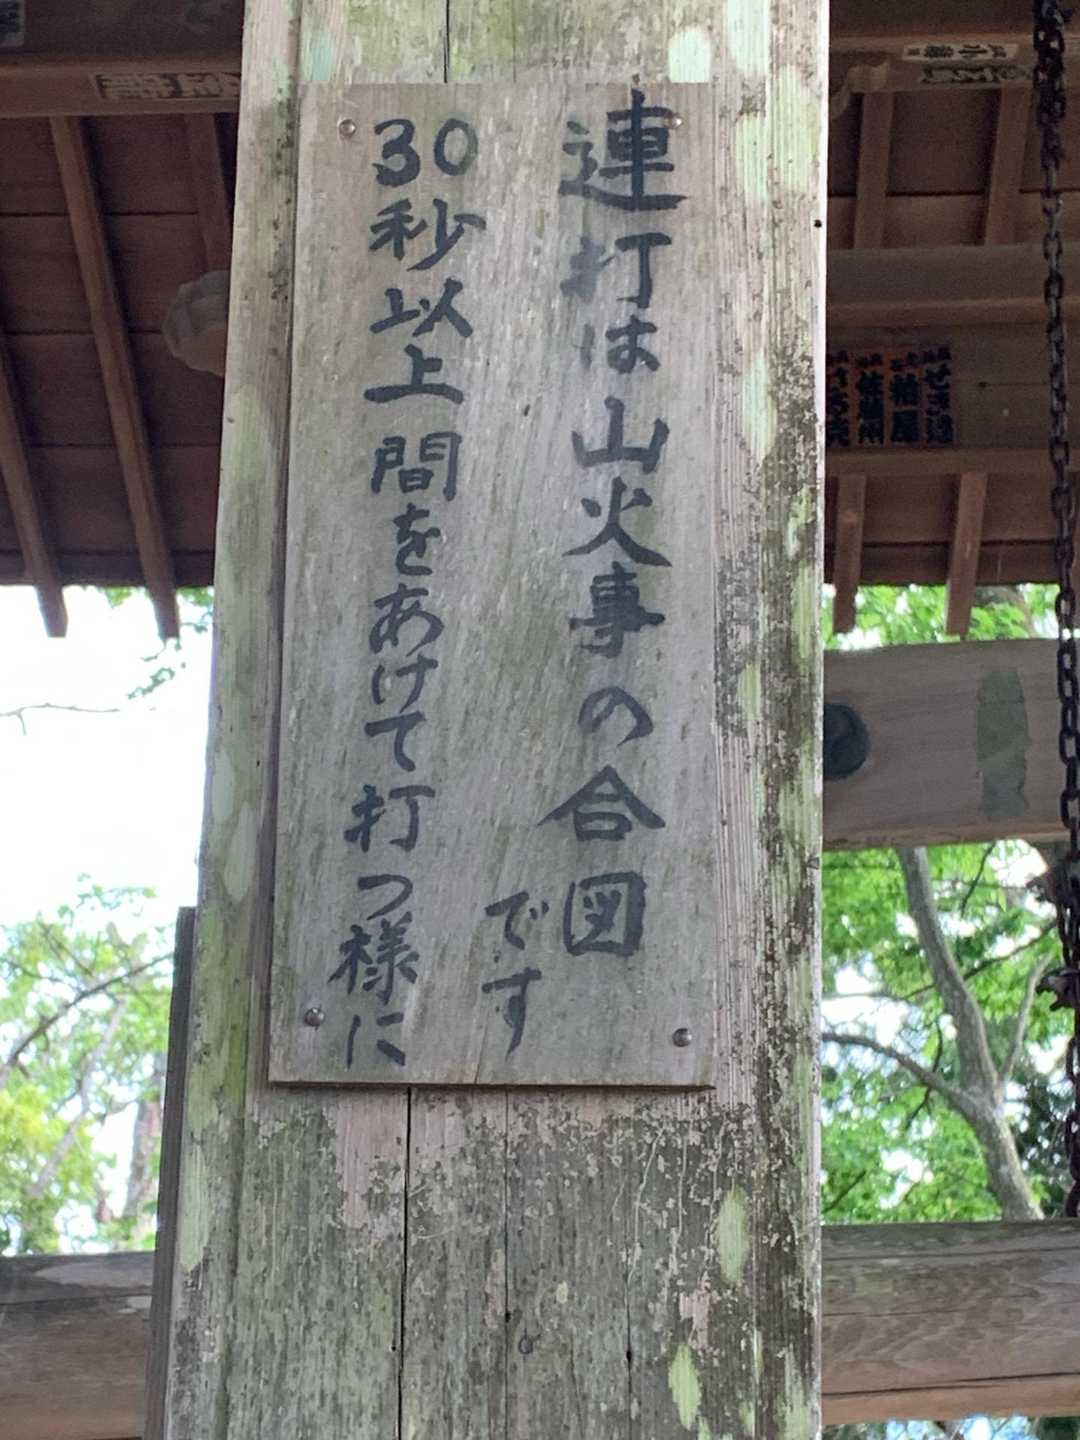 連打は山火事の合図
です
30秒以上間をあけて打つ様に